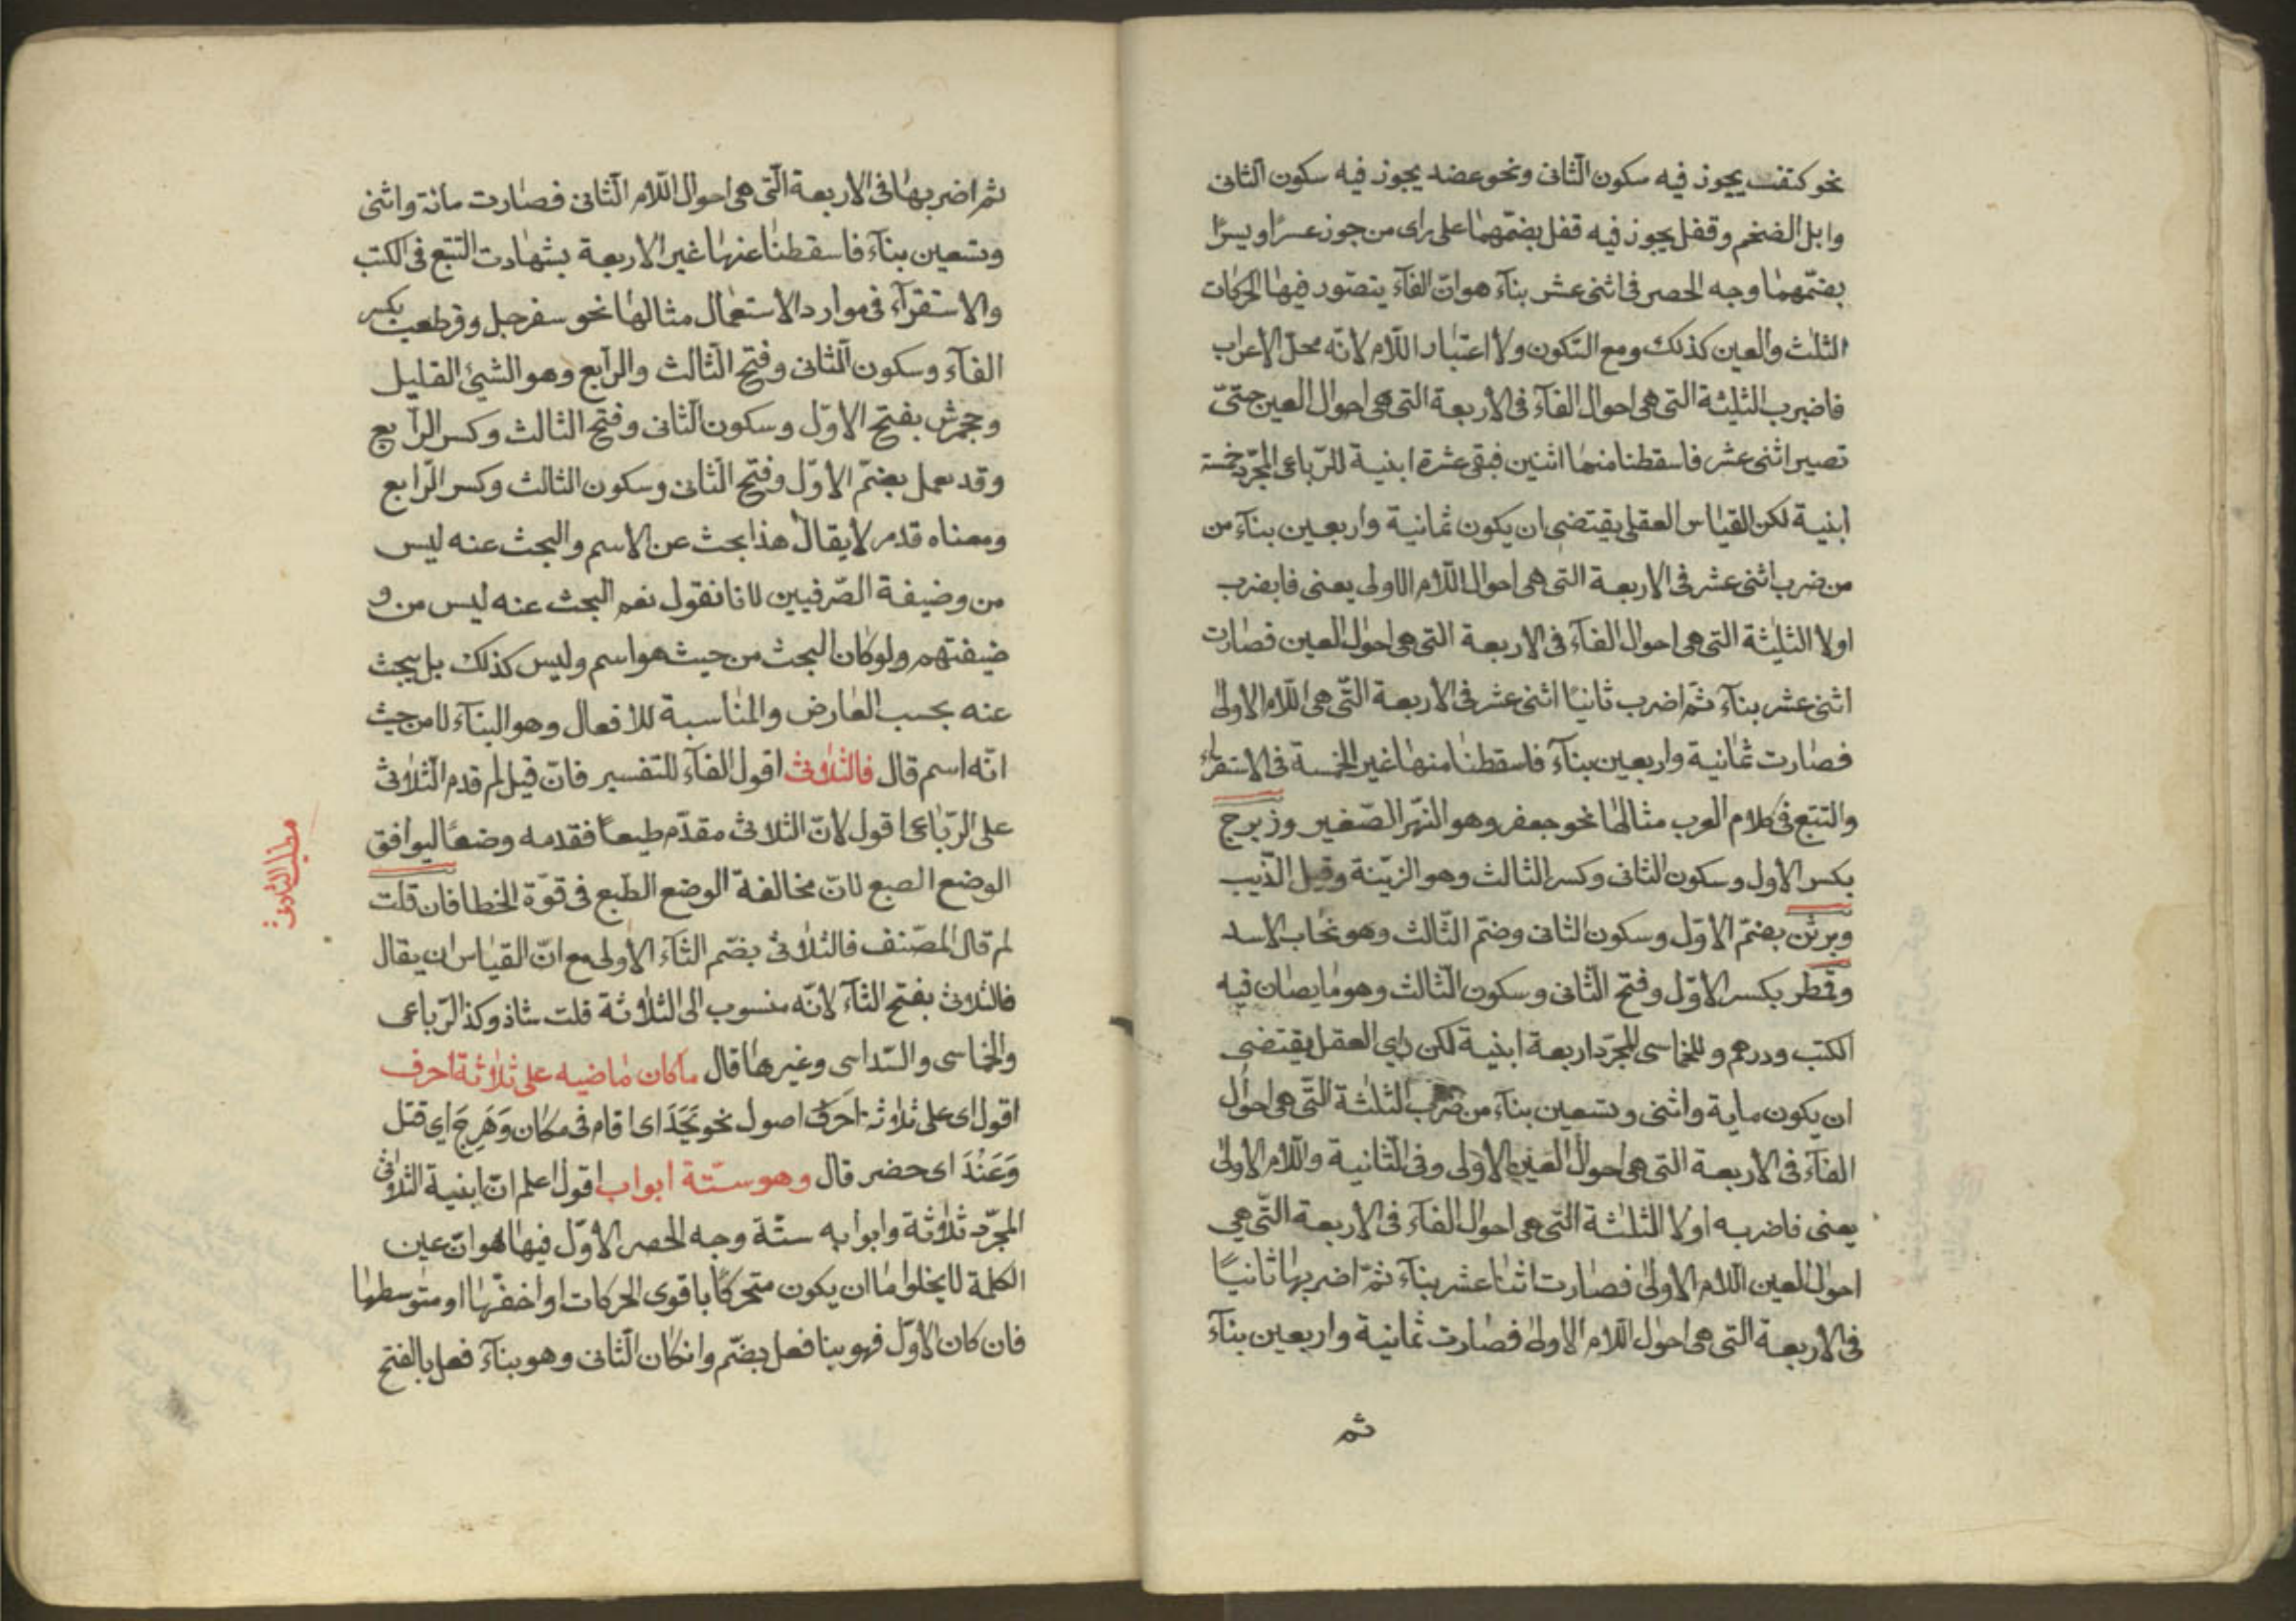 نحو كتف يجوز فيه سكون الثانى ونحو عضد يجوز فيه سكون الثانى
وابل الضخم وقفل يجوز فيه قفل بضمّهما على راى من جوز عسرًا ويسرًا
بضمّهما وجه الحصر فى اثنى عشر بنآء هو انّ الفآء يتصّور فيها الحركات
الثلث والعين كذلك ومع السّكون ولا اعتبار اللّام لانّه محلّ الاعراب
فاضرب الثلثة التى هى احوال الفآء فى الاربعة التى هى احوال العين حتىّ
تصير اثنى عشر فاسقطنا منها اثنين فبقى عشرة ابنية للرّباعى المجرّد خمسة
ابنية لكن القياس العقلى يقتضى ان يكون ثمانية واربعين بنآء من
من ضرب اثنى عشر فى الاربعة التى هى احوال اللّام الاولى يعنى فابضرب
اولا الثلثة التى هى احوال الفآء فى الاربعة التى هى احوال العين فصارت
اثنى عشر بنآء ثمّ اضرب ثانيًا اثنى عشر فى الاربعة التّى هى اللّام الاولى
فصارت ثمانية واربعين بنآء فاسقطنا منها غير الخمسة فى الاستقراء
والتتبع فى كلام العرب مثالها نحو جعفر وهو النهّر الصّغير وزبرج
بكسر الاول وسكون الثانى وكسر الثالث وهو الزيّنة وقيل الذّيب
وبرثن بضمّ الاوّل وسكون الثانى وضمّ الثّالث وهو نخاب الاسد
وقمطر بكسر الاوّل وفتح الثّانى وسكون الثّالث وهو ما يصان فيه
الكتب ودرهم وللخماسى المجرّد اربعة ابنية لكن راي العقل يقتضى
ان يكون ماية واثنى وتسعين بنآء من ضرب الثلثة التّى هى احوال
الفآء فى الاربعة التى هى احوال العين الاولى وفى الثّانية واللّام الاولى
يعنى فاضربه اولا الثلثة التى هى احوال الفآء فى الاربعة التّى هي
احوال العين اللّام الاولى فصارت اثنا عشر بنآء ثمّ اضربها ثانيًا
فى الاربعة التى هى احوال اللّام الاولى فصارت ثمانية واربعين بنآء
ثم
ثم اضربها فى الاربعة الّتى هى احوال اللّام الثّانى فصارت مائة واثنى
وتسعين بنآء فاسقطنا عنها غير الاربعة بشهادت التتبع فى الكتب
والاستقرآء فى موارد الاستعمال مثالها نحو سفرجل وقرطعب بكسر
الفآء وسكون الثانى وفتح الثّالث والرّابع وهو الشيئ القليل
وجحمرش بفتح الاوّل وسكون الثّانى وفتح الثالث وكسر الرّابع
وقد عمل بضمّ الاوّل وفتح الثّانى وسكون الثالث وكسر الرّابع
ومعناه قدم لا يقال هذا بحث عن الاسم والبحث عنه ليس
من وضيفة الصّرفيين لانا نقول نعم البحث عنه ليس من و
ضيفتهم ولو كان البحث من حيث هو اسم وليس كذلك بل يبحث
عنه بحسب العارض والمناسبة للافعال وهو البنآء لا من حيث
انّه اسم قال فالثلاثى اقول الفآء للتفسير فانّ قيل لم قدم الثّلاثى
على الرّباعى اقول لانّ الثلاثى مقدّم طبعًا فقدمه وضعًا ليوافق
الوضع الصبع لانّ مخالفة الوضع الطّبع فى قوّة الخطا فان قلت
لم قال المصّنف فالثلاثى بضّم الثآء الاولى مع انّ القياس ان يقال
فالثلاثى بفتح الثآء لانّه منسوب الى الثلاثة قلت شاذ وكذا الرّباعى
والخماسى والسّداسى وغيرها قال ما كان ماضيه على ثلاثة احرف
اقول اى على ثلاثة احرف اصول نحو بَجَدَ اى اقام فى مكان وَهَرِجَ اى قتل
وَعَنُدَ اى حضر قال وهو ستّة ابواب اقول اعلم انّ ابنية الثلاثى
المجرّد ثلاثة وابوابه ستّة وجه الحصر الاوّل فيها هو انّ عين
الكلمة لا يخلوا ما ان يكون متحركًا باقوى الحركات او اخفّها او متوسطها
فان كان الاوّل فهو بنا فعل بضّم وانكان الثّانى وهو بنآء فعل بالفتح
مطلب الثلاثى